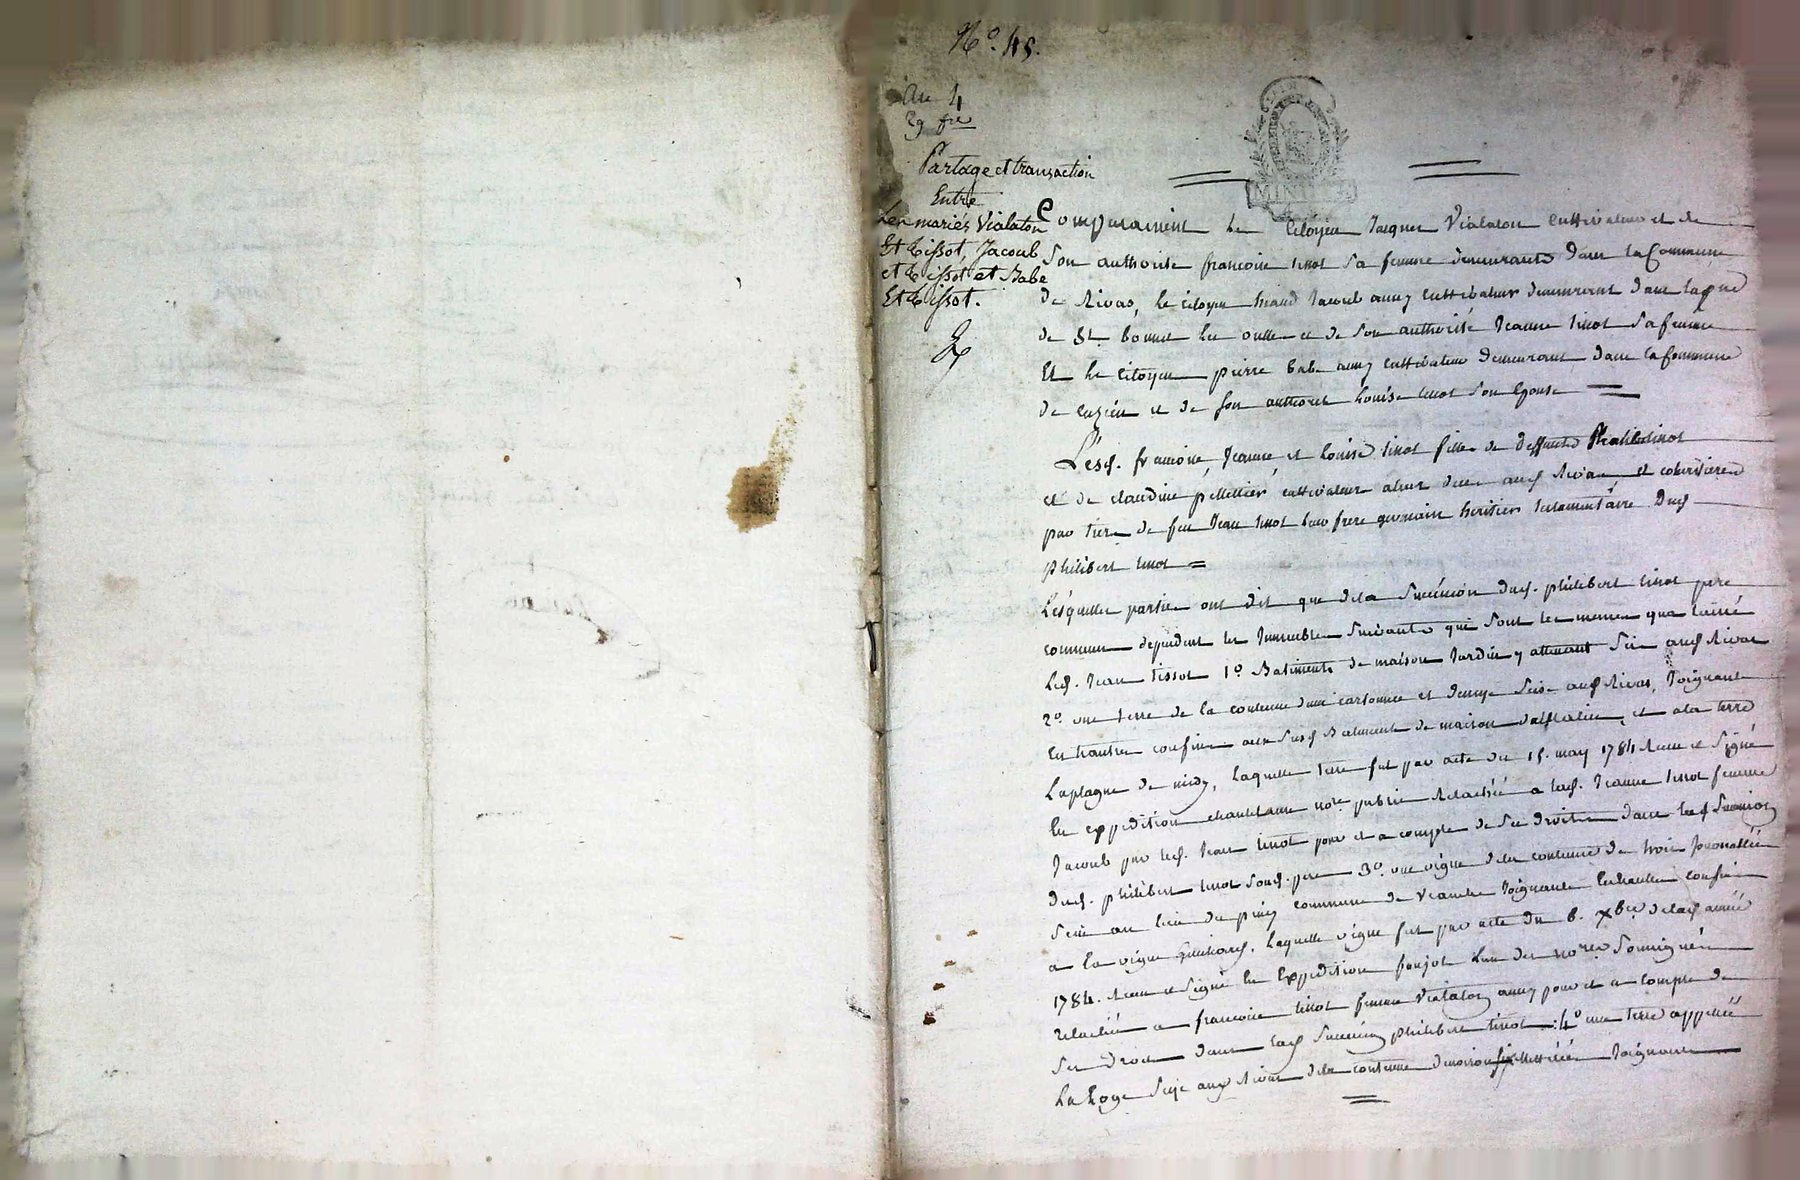 N.º 45.
An 4
29 fre
Partage et transaction
Entre
Les mariés Vialaton
Et tissot, Jacoub
et tissot et Babe
Et tissot.
Comparaissent le Citoyen Jacques Vialaton cultivateur et de
son authorité francoise tissot sa femme demeurants dans la Commune
de Rivas, le citoyen Jacoub aussy cultivateur demeurant dans la
de St. bonnet les oulles et de son authorité Jeanne tissot sa femme
Et le Citoyen pierre babe aussy cultivateur demeurant dans la Commune
de cuzieu et de son authorité Louise tissot son Epouse
Lesd. francoise, Jeanne et Louise tissot filles de deffunts Philibert tissot
et de claudine pelletier, cultivateurs aud. Rivas et cohéritieres
par tiers de feu Jean tissot leur frere germain héritier testamentaire Dud.
philibert tissot =
Lesquelles parties ont dit que de la Succession dud. philibert tissot pere
commun dépendent les Immeubles Suivants qui sont les memes qua laissé
Led. Jean tissot 1º Batiments de maison Jardin y attenant Sis aud. Rivas
2º une terre de la contenue dune cartonnée et demye Sise aud. Rivas, Joignant
Entrautres confins aux Susd. Batiments de maison et a la terre
Laplagne de midy, Laquelle terre fut par acte du 15. may 1784 Reçu et Signé
En expedition chantelauze nore. public Relachée a lad. Jeanne tissot femme
Jacoub par led. Jean tissot pour et a compte de ses droits dans lad. Succession
dud. philibert tissot Soud. pere 3º une vigne de la contenue de trois Journallées
Scise au lieu du commune de Veauche Joignante Entrautres confins
a la vigne Laquelle vigne fut par acte du 6. Xbre de lad. année
1784. Reçu et Signé En Expedition ponjot L'un des nores Soussignés
relachée a francoise tissot femme Vialaton aussy pour et a compte de
Ses Droits dans lad. Succession philibert tissot : 4º une terre appellée
La Loge Sise aud. Rivas de la contenue denviron Joignante